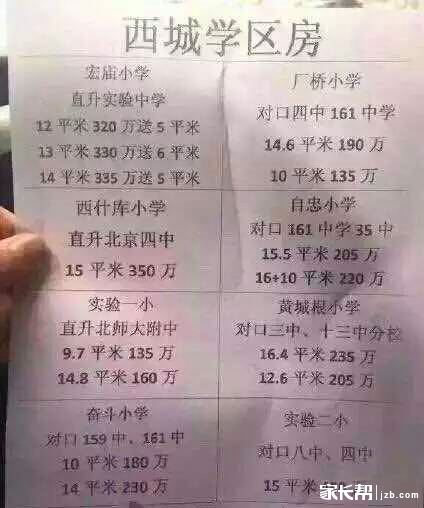 西城学区房
宏庙小学
直升实验中学
12 平米 320 万送 5 平米
13 平米 330 万送 6 平米
14 平米 335 万送 5 平米
厂桥小学
对口四中 161 中学
14.6 平米 190 万
10 平米 135 万
西什库小学
直升北京四中
15 平米 350 万
自忠小学
对口 161 中学 35 中
15.5 平米 205 万
16+10 平米 220 万
实验一小
直升北师大附中
9.7 平米 135 万
14.8 平米 160 万
黄城根小学
对口三中、十三中分校
16.4 平米 235 万
12.6 平米 205 万
奋斗小学
对口 159 中、161 中
10 平米 180 万
14 平米 230 万
实验二小
对口八中、四中
15
家长帮 jzb.com